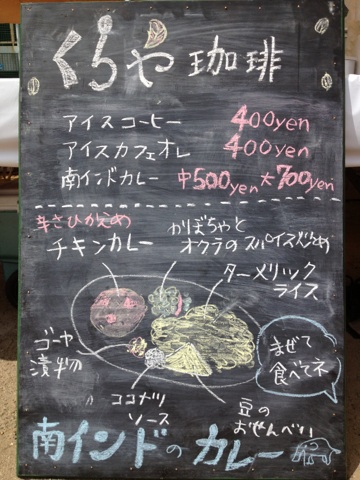 くらや 珈琲
アイスコーヒー 400yen
アイスカフェオレ 400yen
南インドカレー 中500yen 大700yen
辛さひかえめ
チキンカレー
かぼちゃと
オクラのスパイス炒め
ターメリック
ライス
ゴーヤ
漬物
まぜて
食べてネ
ココナツ
ソース
豆の
おせんべい
南インドのカレー